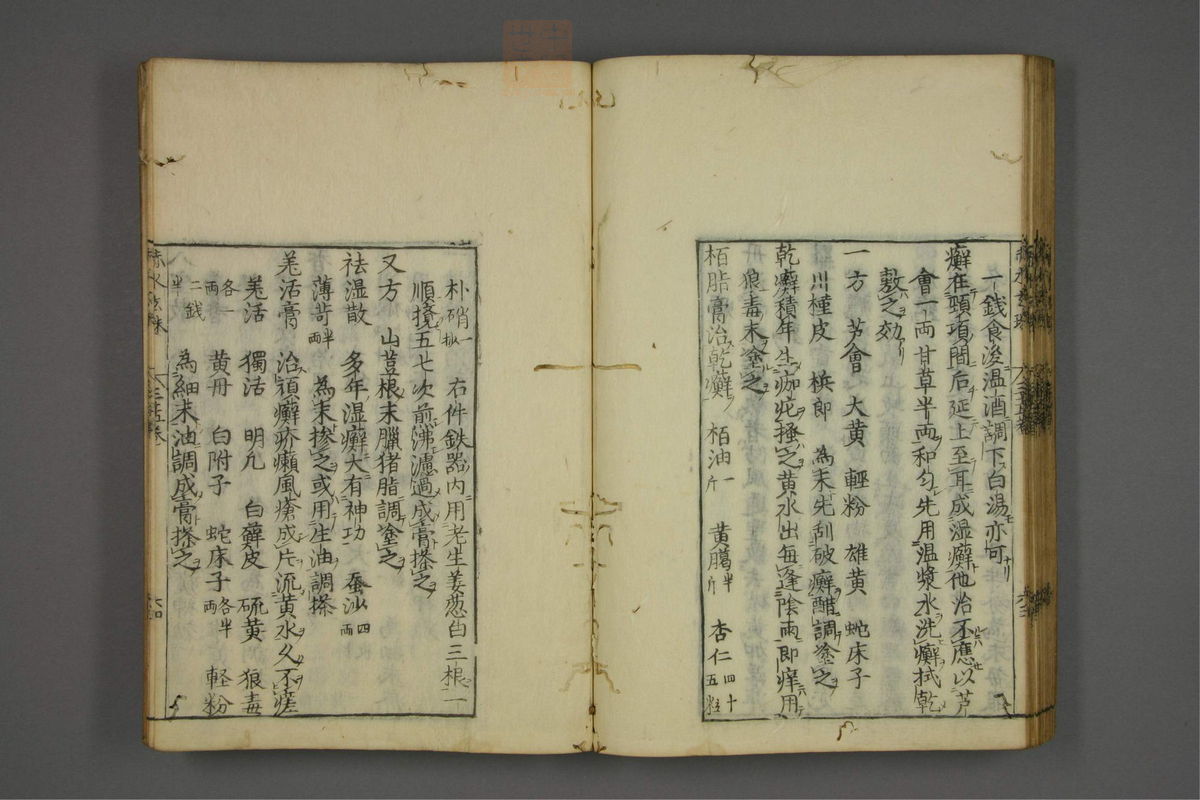 一錢食後温酒調下白湯亦可
癬在頸項間后延上至耳成湿癬他治不應以芦
會一両甘草半両和匀先用温漿水洗癬拭乾
敷之効
一方　芦會　大黄　輕粉　雄黄　蛇床子
川槿皮　檳郎　為末先刮破癬醋調塗之
乾癬積年生痂疕搔之黄水出每逢陰雨即痒用
狼毒末塗之
栢脂膏治乾癬　栢油一斤　黄臈半斤　杏仁四十五粒
朴硝一抄　右件鉄器内用老生姜葱白三根一
順攪五七次前沸濾過成膏搽之
又方　山荳根末臘猪脂調塗之
祛湿散　多年湿癬大有神功　蚕沙四両
薄苛半両　為末掺之或用生油調搽
羌活膏　治頑癬疥癩風瘡成片流黄水久不瘥
羌活　獨活　明凢　白蘚皮　硫黄　狼毒
各一両　黄丹　白附子　蛇床子各半両　軽粉
二錢半　為細末油調成膏搽之
赤水玄珠
六十四